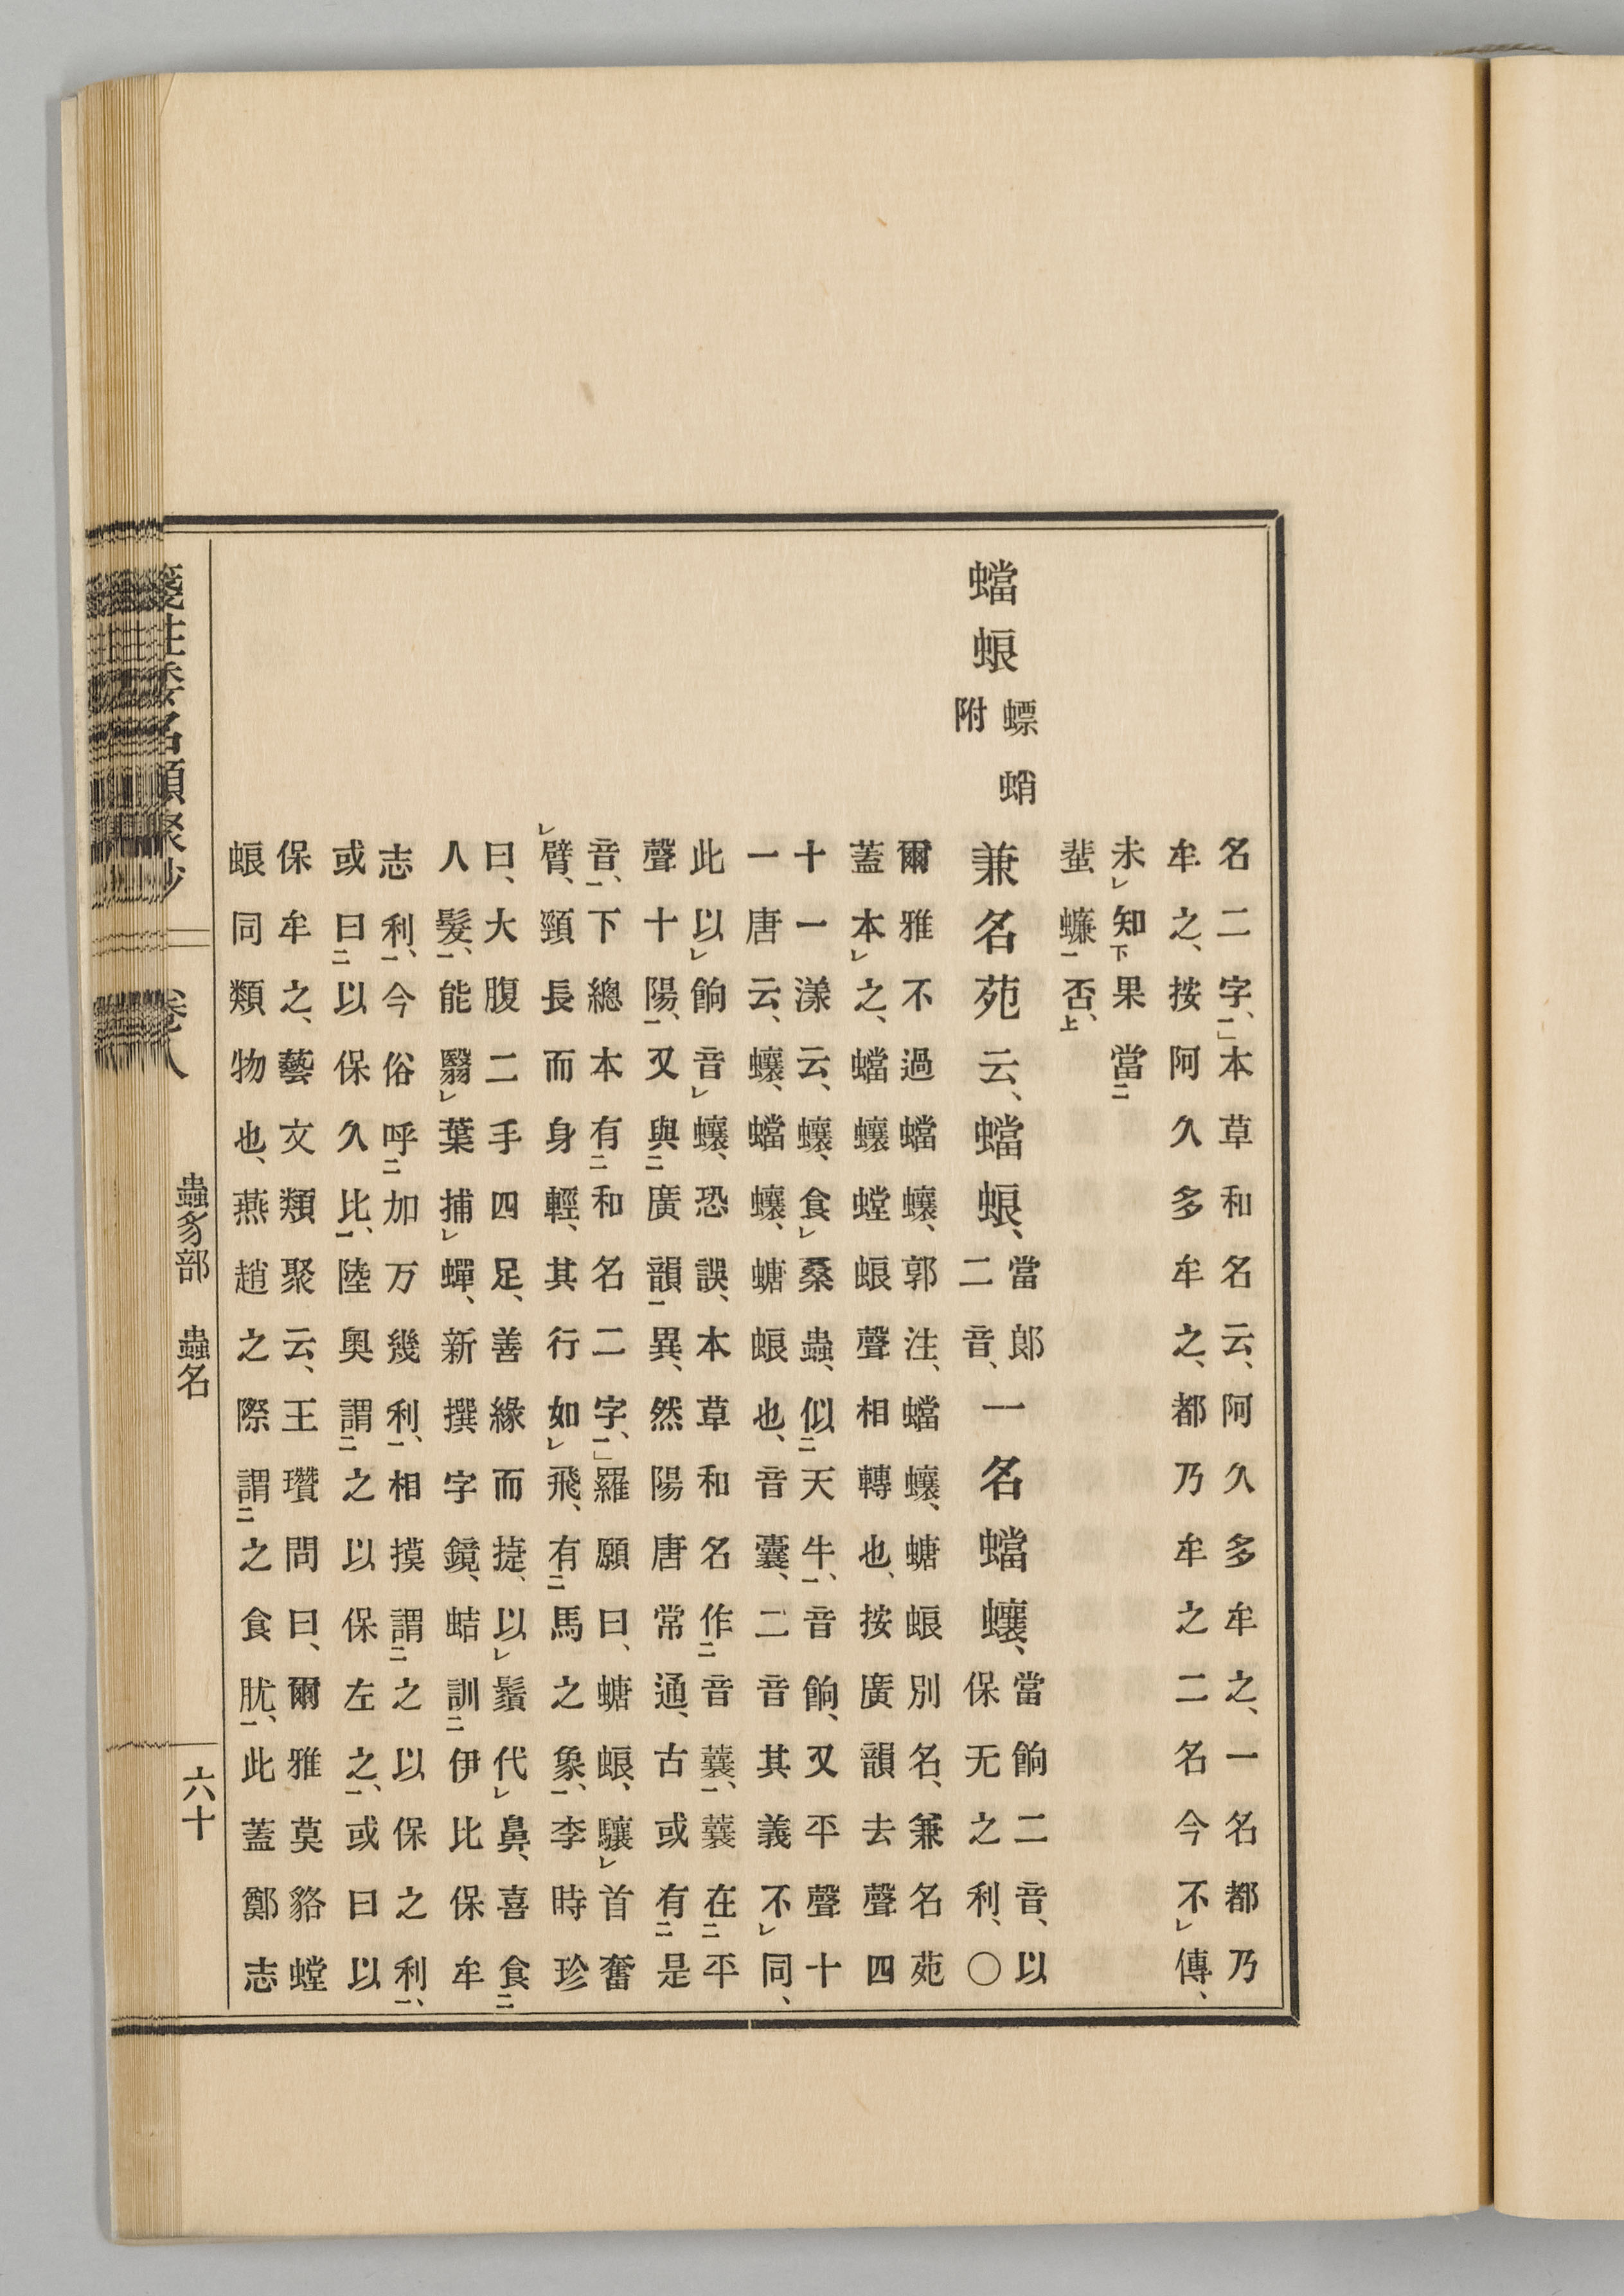 名二字、本草和名云、阿久多牟之、一名都乃
牟之、按阿久多牟之、都乃牟之二名今不傳、
未知果當
蜚蠊否、
蟷蜋
螵蛸
附
兼名苑云、蟷蜋、
當郎
二音、
一名蟷蠰、
當餉二音、以
保无之利、〇
爾雅不過蟷蠰、郭注、蟷蠰、螗蜋別名、兼名苑
蓋本之、蟷蠰螳蜋聲相轉也、按廣韻去聲四
十一漾云、蠰、食桑蟲、似天牛、音餉、又平聲十
一唐云、蠰、蟷蠰、螗蜋也、音囊、二音其義不同、
此以餉音蠰、恐誤、本草和名作音蘘、蘘在平
聲十陽、又與廣韻異、然陽唐常通、古或有是
音、下總本有和名二字、羅願曰、螗蜋、驤首奮
臂、頸長而身輕、其行如飛、有馬之象、李時珍
曰、大腹二手四足、善緣而捷、以鬚代鼻、喜食
人髮、能翳葉捕蟬、新撰字鏡、蛣訓伊比保牟
志利、今俗呼加万幾利、相摸謂之以保之利、
或曰以保久比、陸奧謂之以保左之、或曰以
保牟之、藝文類聚云、王瓚問曰、爾雅莫貉螳
蜋同類物也、燕趙之際謂之食肬、此蓋鄭志
名類聚抄
卷八
蟲豸部 蟲名
六十